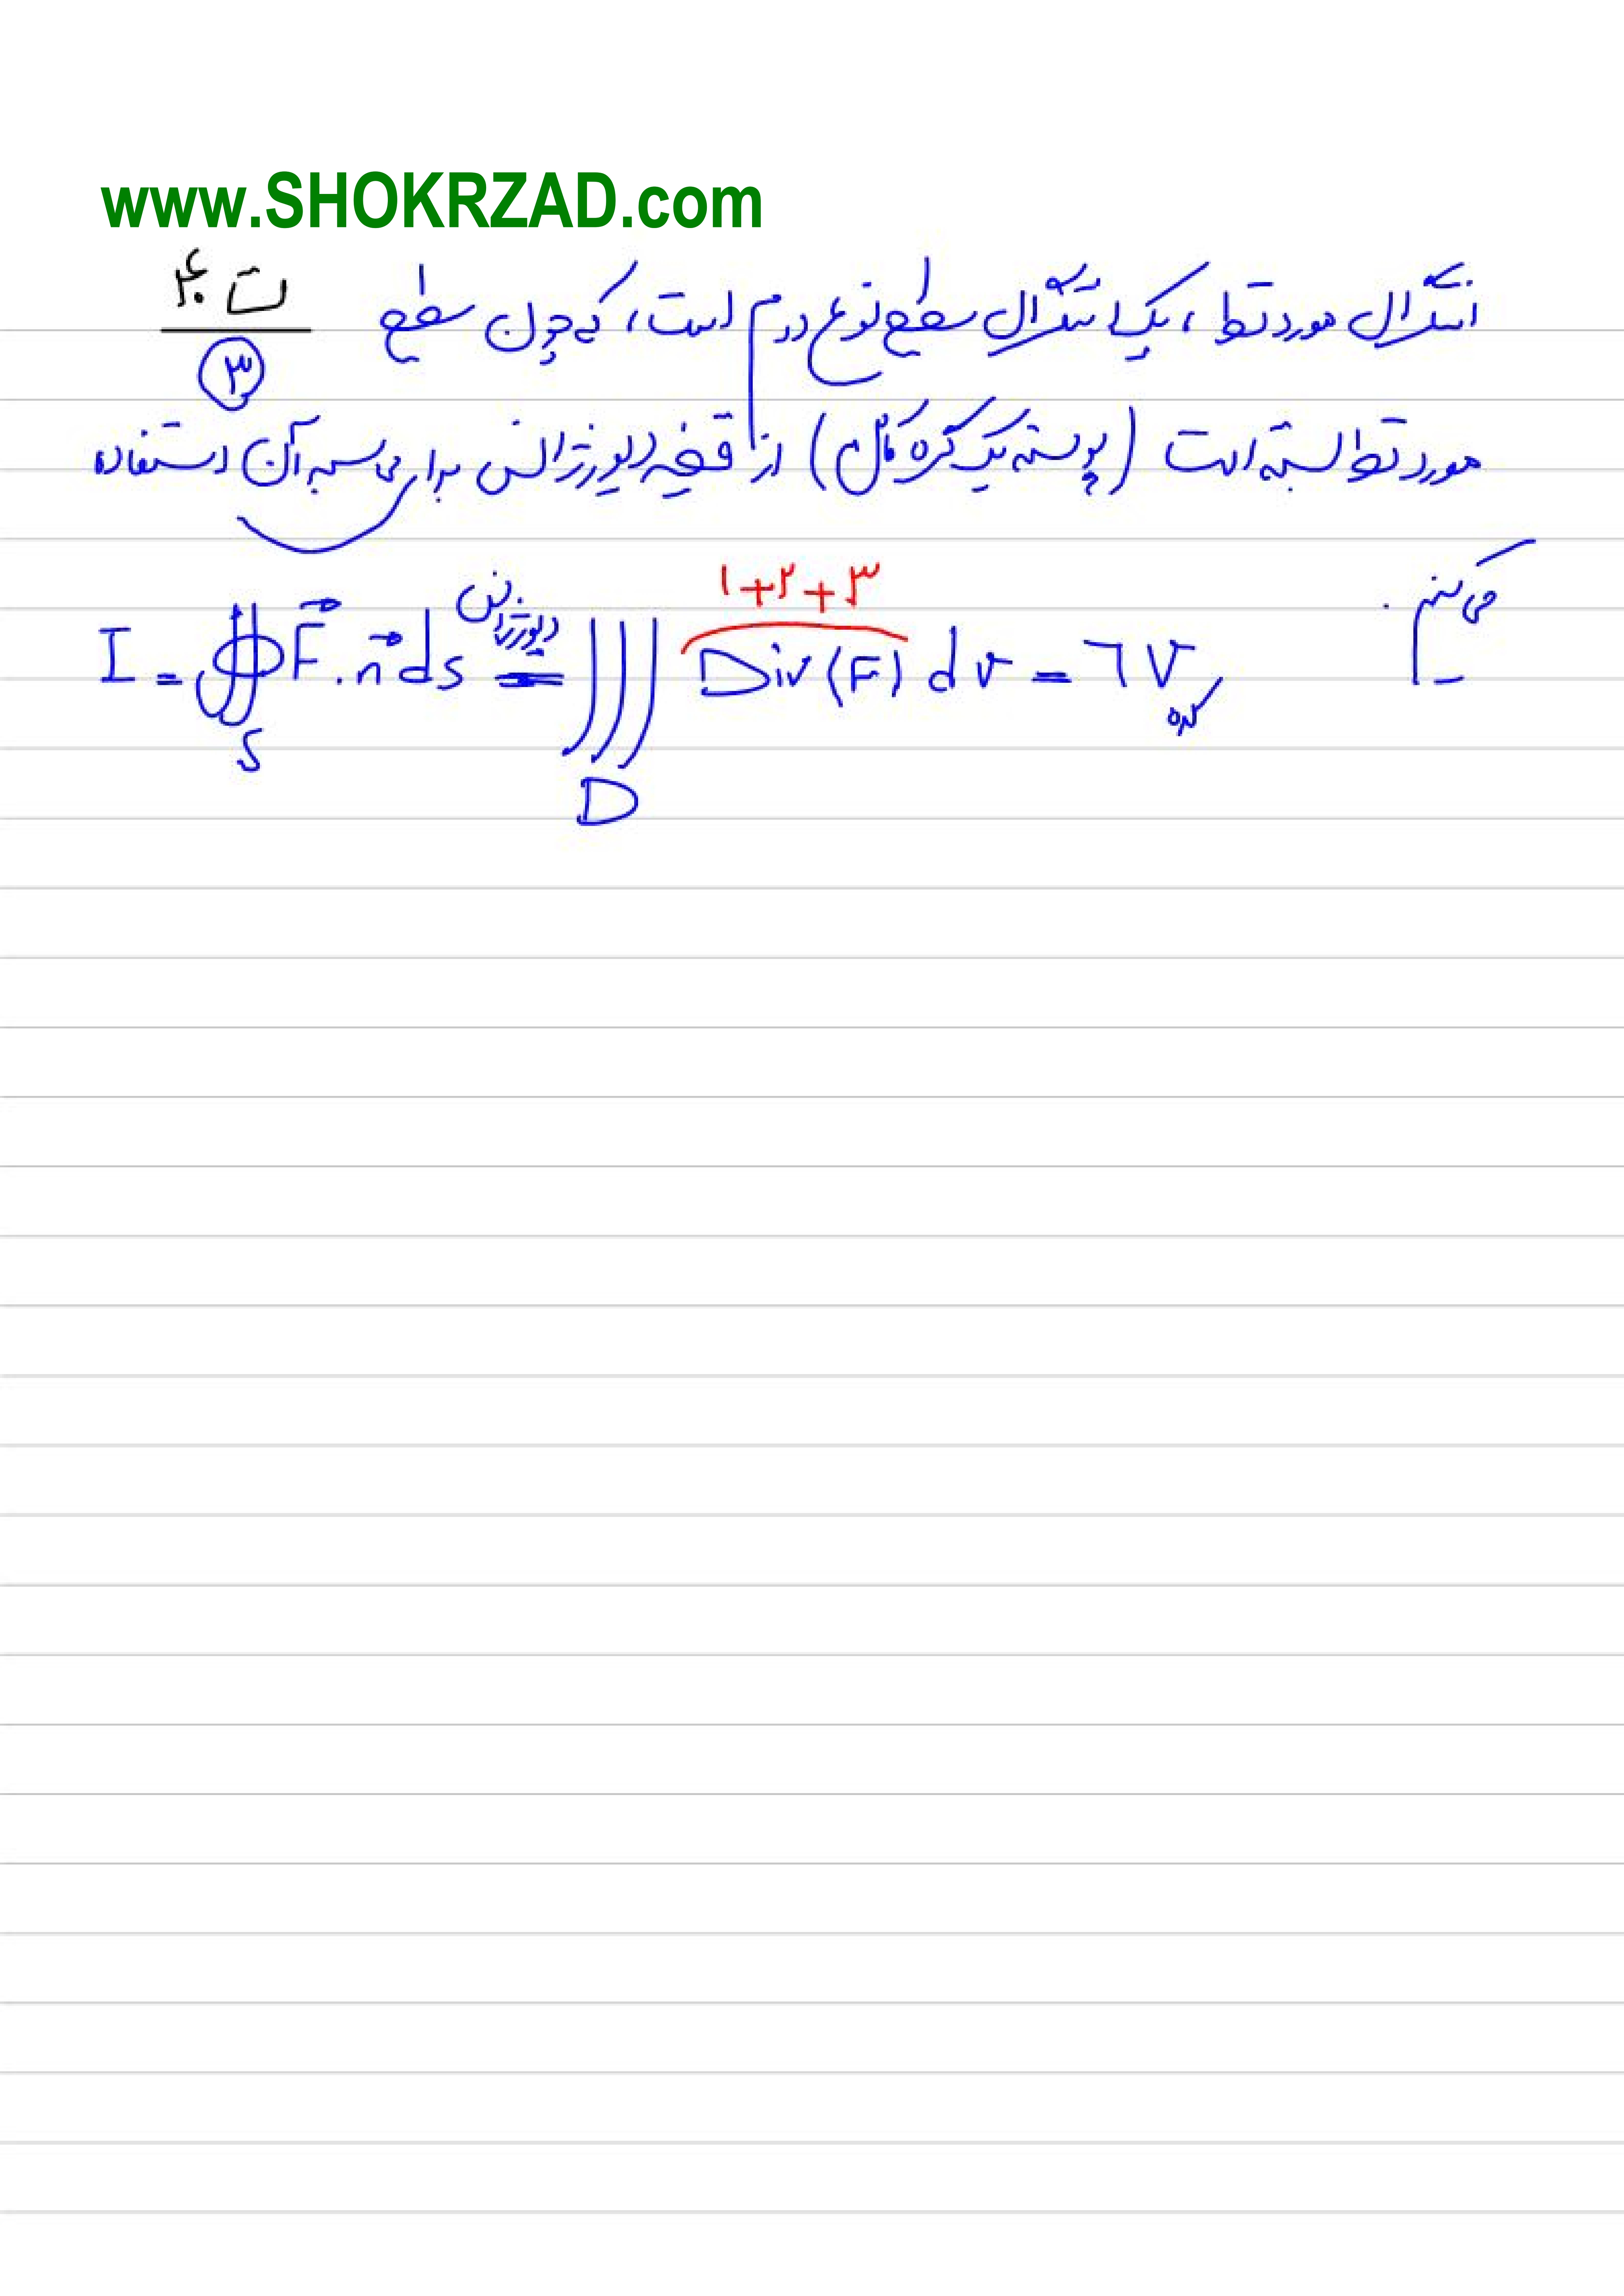 www.SHOKRZAD.com
ت ۴۰
۳
انتگرال مورد نظر، یک انتگرال سطح نوع دوم است، که چون سطح
مورد نظر بسته است (پوسته یک کره کامل) از قضیه دیورژانس برای محاسبه آن استفاده
می‌کنیم.
۱+۲+۳
I = ∯_S F⃗ . n⃗ ds =^{دیورژانس} ∭_D Div(F) dv = ۶ V_{کره}